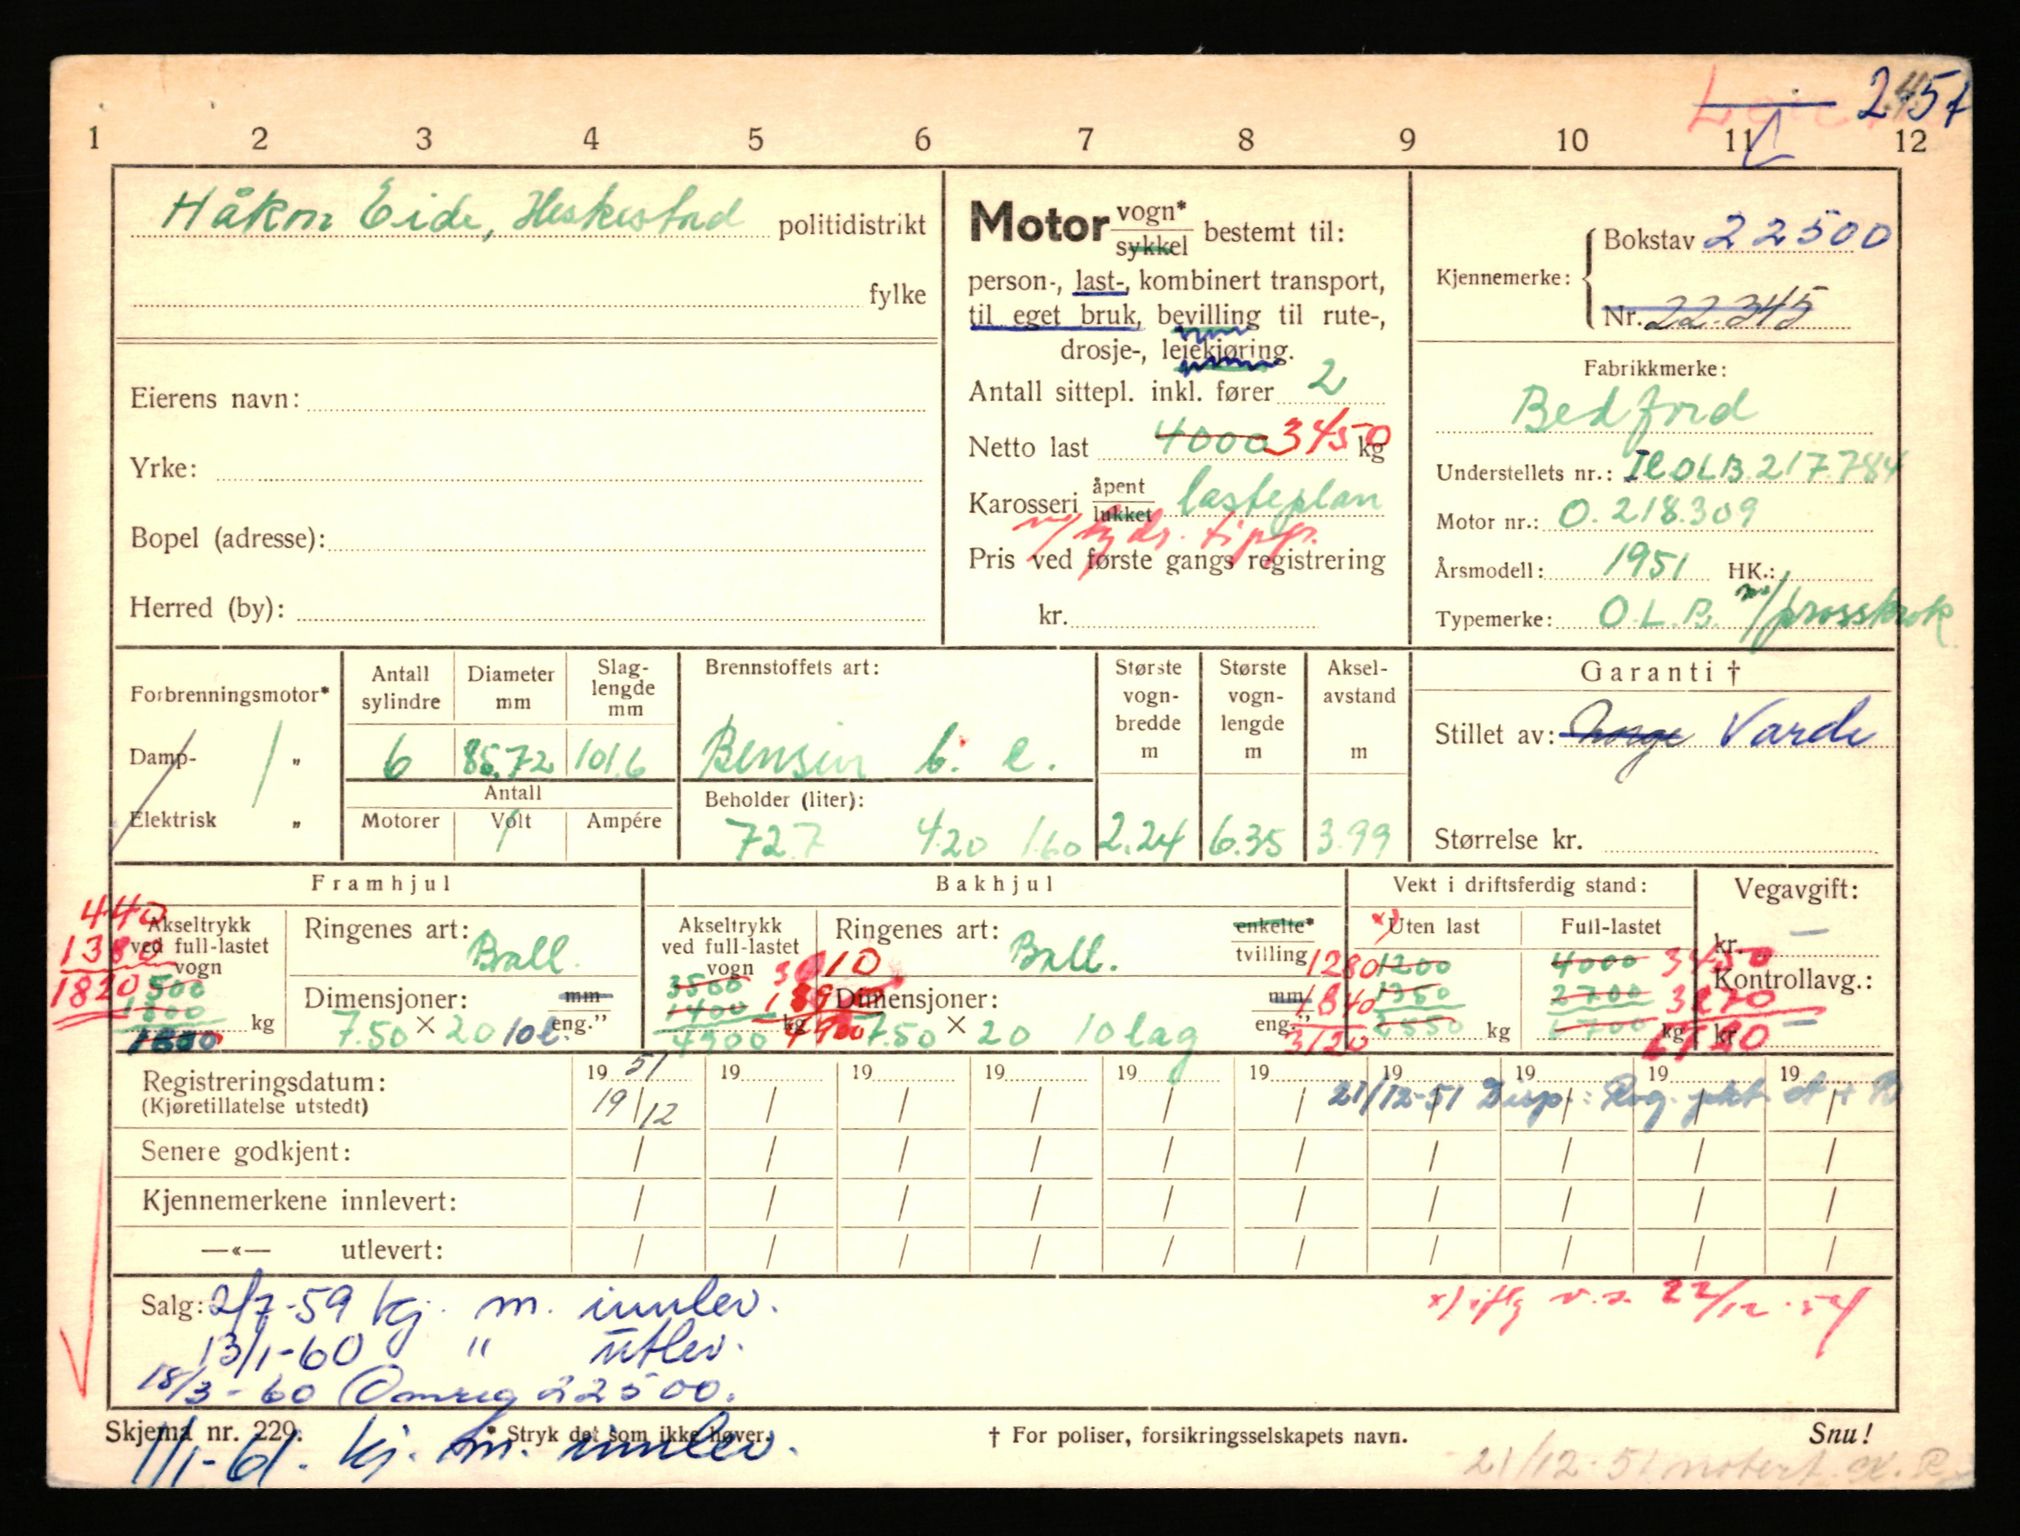 2457
1 2 3 4 5 6 7 8 9 10 11 12
Håkon Eide, Heskestad politidistrikt
fylke
Eierens navn:
Yrke:
Bopel (adresse):
Herred (by):
Motor vogn*
sykkel bestemt til:
person-, last-, kombinert transport,
til eget bruk, bevilling til rute-,
drosje-, leiekjøring.
Antall sittepl. inkl. fører 2
Netto last 4000 3450 kg
Karosseri åpent
lukket lasteplan
m/hydr. tipp.
Pris ved første gangs registrering
kr.
Kjennemerke:
Bokstav 22500
Nr. 22.345
Fabrikkmerke:
Bedford
Understellets nr.: OLB.217.784
Motor nr.: O. 218.309
Årsmodell: 1951 HK.:
Typemerke: O.L.B. m/
Forbrenningsmotor*
Damp- „
Elektrisk „
Antall sylindre
6
Diameter mm
85,72
Slag-lengde mm
101,6
Antall
Motorer Volt Ampére
Brennstoffets art:
Bensin b. c.
Beholder (liter):
72.7 4.20 1.60
Største vogn-bredde m
2.24
Største vogn-lengde m
6.35
Aksel-avstand m
3.99
Garanti †
Stillet av: Norge Varde
Størrelse kr.
Framhjul
440
1380
1820
Akseltrykk ved full-lastet vogn
500
1300
1800
kg
Ringenes art: Ball.
Dimensjoner: mm
7.50 × 20 10 l. eng."
Bakhjul
Akseltrykk ved full-lastet vogn
3500
1400
4900 kg
3010
4900
Ringenes art: Ball. enkelte*
tvilling
Dimensjoner: mm
7.50 × 20 10 lag eng."
Vekt i driftsferdig stand:
x) Uten last
1280 1200
1840 1350
3120 2550 kg
Full-lastet
4000 3450
2700 3270
6700 kg
Vegavgift:
kr. —
Kontrollavg.:
kr. —
Registreringsdatum:
(Kjøretillatelse utstedt)
19 51 19 19 19 19 19 19 19 19 19
19/12
21/12-51 Disp.: Rog.
Senere godkjent:
Kjennemerkene innlevert:
—«— utlevert:
Salg: 2/7-59 kj. m. innlev.
13/1-60 " utlev.
18/3-60 Omreg 22500.
x) iflg v.s. 22/12-51
1/1-61. kj. m. innlev.
Skjema nr. 229. * Stryk det som ikke høver. † For poliser, forsikringsselskapets navn. Snu!
21/12-51 notert. K. R